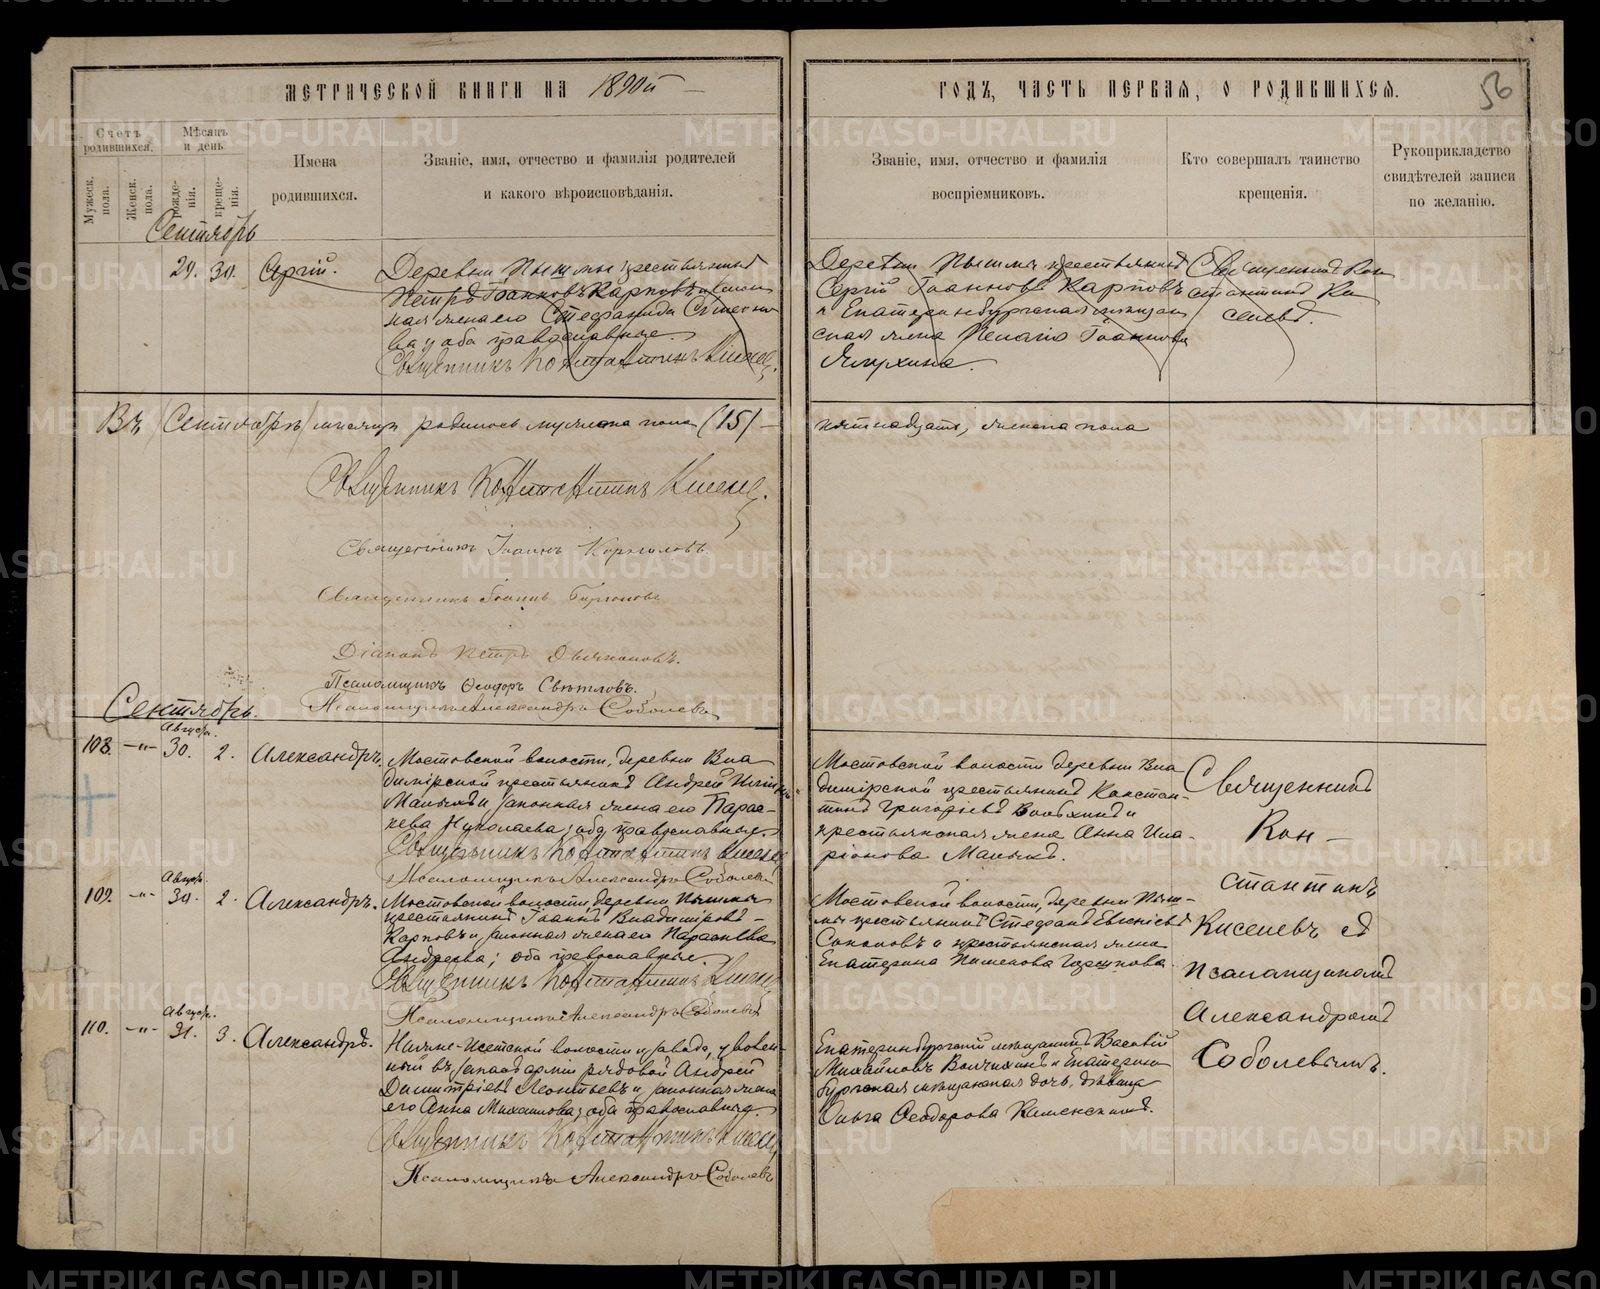 МЕТРИЧЕСКОЙ КНИГИ НА 1890й
ГОДЪ, ЧАСТЬ ПЕРВАЯ, О РОДИВШИХСЯ.
56
Счетъ родившихся.
Мѣсяцъ и день
Мужеск. пола.
Женск. пола.
рожде-
нія.
креще-
нія.
Имена
родившихся.
Званіе, имя, отчество и фамилія родителей
и какого вѣроисповѣданія.
Званіе, имя, отчество и фамилія
воспріемниковъ.
Кто совершалъ таинство
крещенія.
Рукоприкладство
свидѣтелей записи
по желанію.
Сентябрь
29. 30. Сергій.
Деревни Пышмы крестьянинъ
Петръ Іоанновъ Карповъ и закон
ная жена его Стефанида
оба православные.
Священникъ Константинъ Киселевъ
Деревни Пышмы крестьянинъ
Сергій Іоанновъ Карповъ
и Екатеринбургская мѣщан
ская жена Пелагія Іоаннова
Священникъ Кон
стантинъ Ки
селевъ.
Въ Сентябрѣ мѣсяцѣ родилось мужеска пола (15) –
пятнадцать, женска пола
Священникъ Константинъ Киселевъ.
Священникъ Іоаннъ
Священникъ Іоаннъ
Діаконъ Петръ Дьяконовъ.
Псаломщикъ Ѳеодоръ Свѣтловъ.
Псаломщикъ Александръ Соболевъ
Сентябрь.
Август.
108. –"– 30. 2. Александръ.
Мостовской волости, деревни Вла
димірской крестьянинъ Андрей Ильинъ
и законная жена его Парас-
кева Николаева; оба православные.
Священникъ Константинъ Киселевъ
Псаломщикъ Александръ Соболевъ
Мостовской волости деревни Вла
димірской крестьянинъ Констан-
тинъ Григорьевъ и
крестьянская жена Анна Ила-
ріонова
Священникъ
Кон-
стантинъ
Киселевъ съ
псаломщикомъ
Александромъ
Соболевымъ.
Август.
109. –"– 30. 2. Александръ.
Мостовской волости, деревни Пышмы
крестьянинъ Іоаннъ Владиміровъ
Карповъ и законная жена его Параскева
Андреева; оба православные.
Священникъ Константинъ Киселевъ
Псаломщикъ Александръ Соболевъ
Мостовской волости, деревни Пыш-
мы крестьянинъ Стефанъ Евгеніевъ
Соколовъ и крестьянская жена
Екатерина Пименова
Август.
110. –"– 31. 3. Александръ.
Нижне-Исетской волости и завода, уволен-
ный въ запасъ арміи рядовой Андрей
Димитріевъ Леонтьевъ и законная жена
его Анна Михаилова; оба православные.
Священникъ Константинъ Киселевъ
Псаломщикъ Александръ Соболевъ
Екатеринбургскій мѣщанинъ Василій
Михайловъ и Екатерин-
бургская мѣщанская дочь, дѣвица
Ольга Ѳеодорова
METRIKI.GASO-URAL.RU